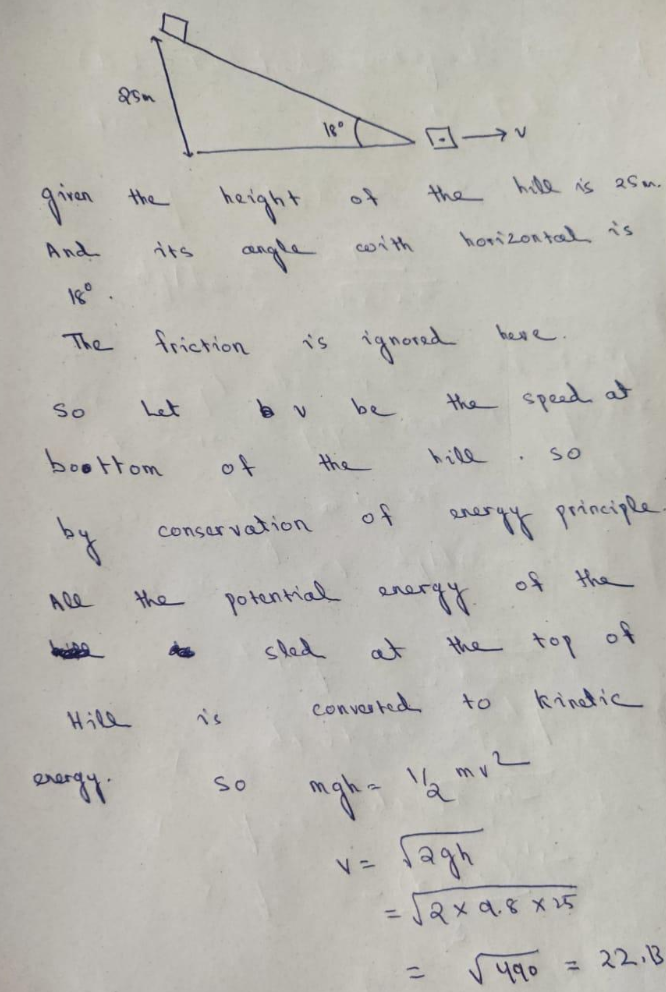 25m
18°
→ v
given the height of the hill is 25m.
And its angle with horizontal is
18°.
The friction is ignored here.
So Let v be the speed at
bottom of the hill. so
by conservation of energy principle.
All the potential energy of the
sled at the top of
Hill is converted to kinetic
energy. So mgh = 1/2 mv²
v = √2gh
= √2 × 9.8 × 25
= √490 = 22.13